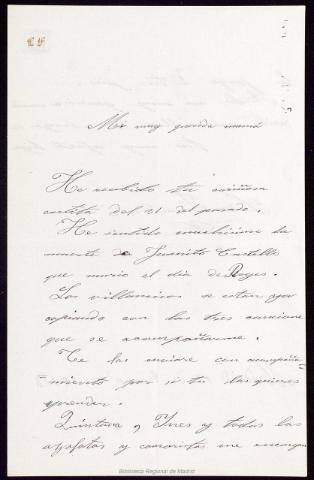 Mi muy querida mamá
He recibido tu cariñosa
cartita del 21 del pasado.
He sentido muchísimo la
muerte de Juanito Castillo
que murio el día de Reyes.
Los villancicos se estan
copiando con las tres canciones
que se acompañarme.
Te las enviare con acompaña-
miento por si tu las quieres
aprender.
Quintana, Ynes y todos los
y me encargan
Biblioteca Regional de Madrid